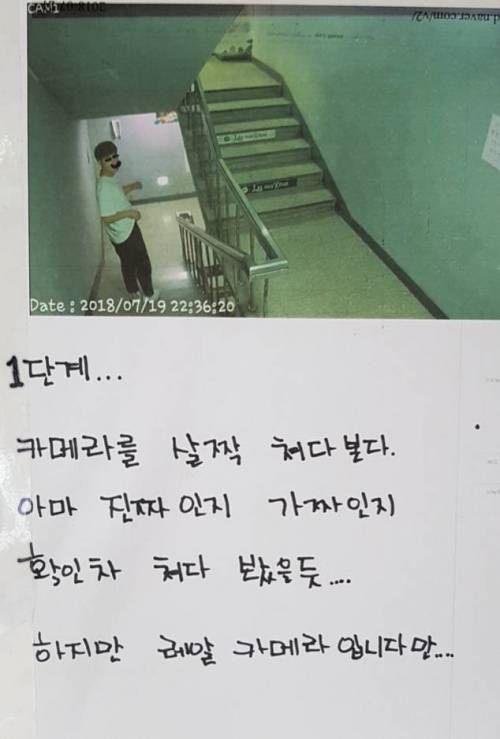 CAM1
d.naver.com/v2/
Date : 2018/07/19 22:36:20
1단계...
카메라를 살짝 쳐다본다.
아마 진짜인지 가짜인지
확인차 쳐다 봤을듯....
하지만 레알 카메라 입니다만....